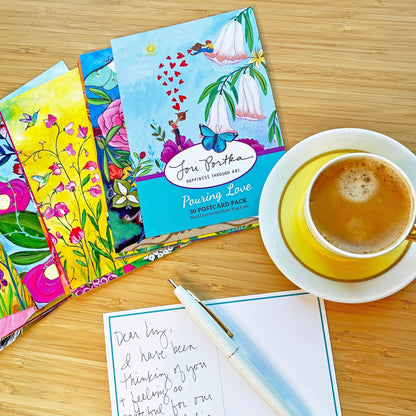 Lori Portka
HAPPINESS THROUGH ART
Pouring Love
30 POSTCARD PACK
Send Love to the Ones You Love
Dear Livy,
I have been
thinking of you
+ feeling so
grateful for our